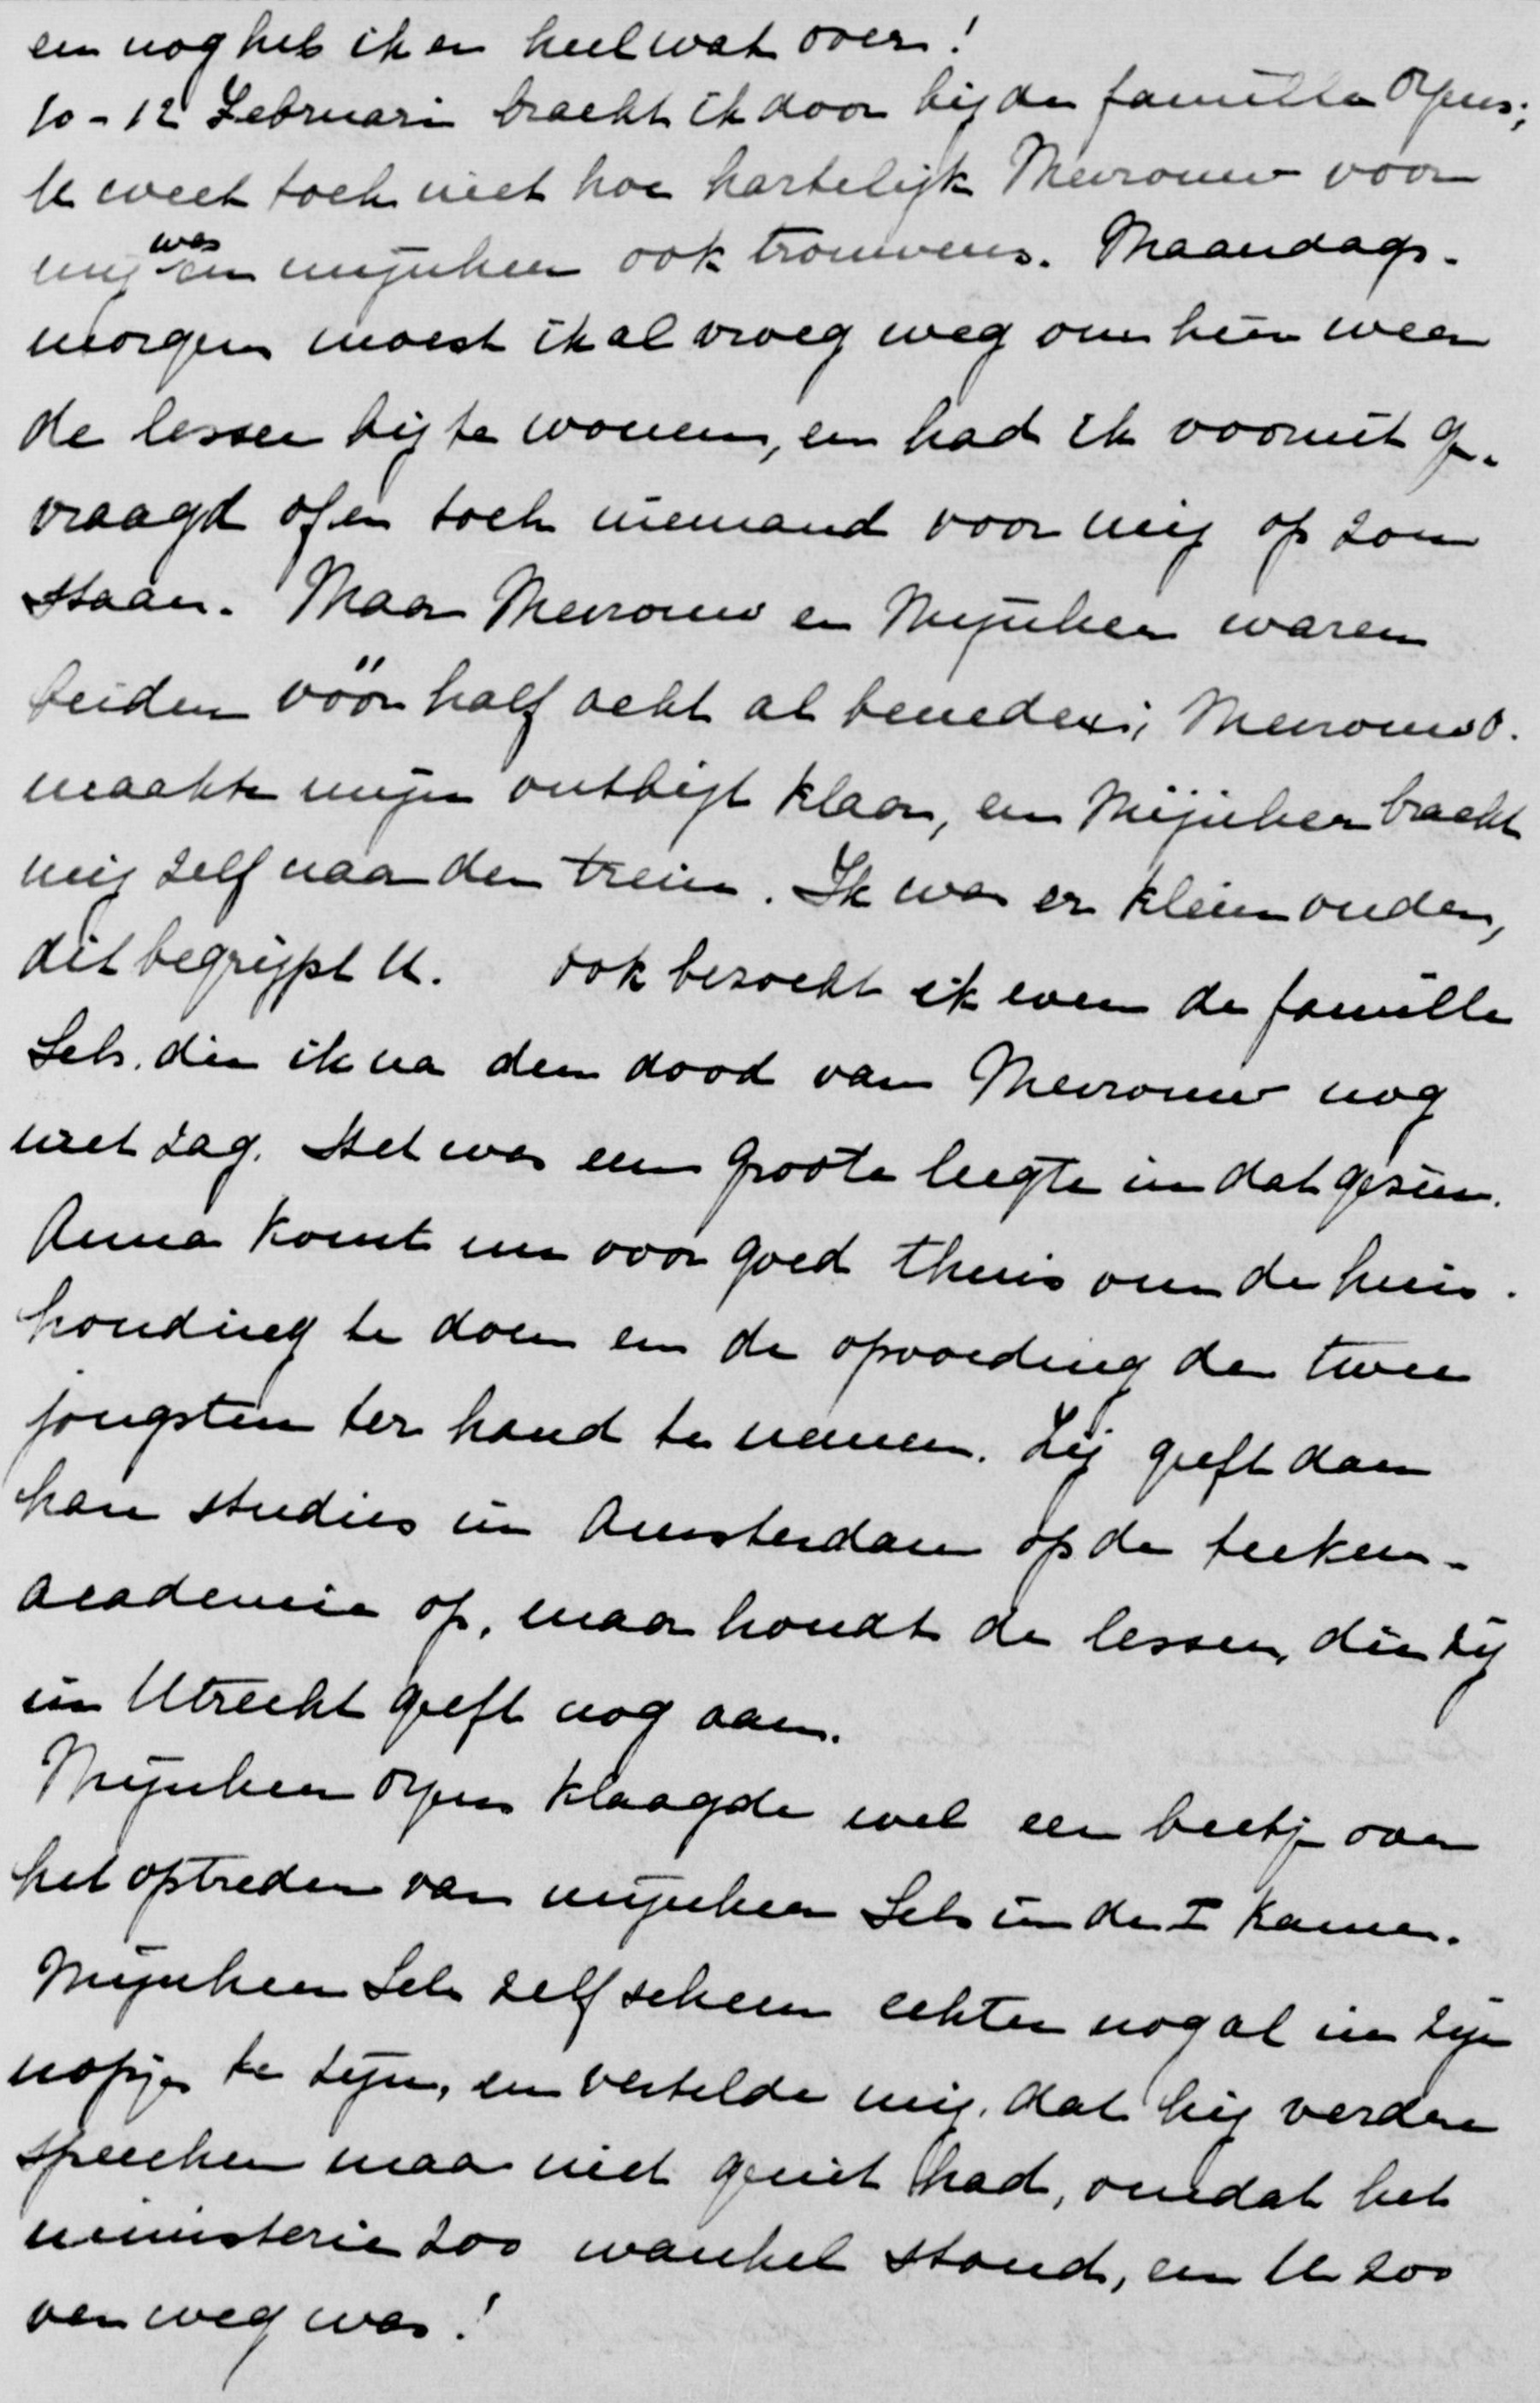 en nog heb ik er heel wat over!
10-12 Februari bracht ik door bij de familie Opus;
U weet toch niet hoe hartelijk Mevrouw voor
mij was en mijnheer ook trouwens. Maandags-
morgen moest ik al vroeg weg om hier weer
de lessen bij te wonen, en had ik vooruit ge-
vraagd of er toch niemand voor mij op zou
staan. Maar Mevrouw en Mijnheer waren
beiden vóór half acht al beneden; Mevrouw O.
maakte mijn ontbijt klaar, en Mijnheer bracht
mij zelf naar den trein. Ik was er klein onder,
dit begrijpt U. Ook bezocht ik even de familie
Sels, die ik na den dood van Mevrouw nog
niet zag. Het was een groote leegte in dat gezin.
Anna komt nu voor goed thuis om de huis-
houding te doen en de opvoeding der twee
jongsten ter hand te nemen. Zij geeft dan
haar studies in Amsterdam op de teeken-
academie op, maar houdt de lessen, die zij
in Utrecht geeft nog aan.
Mijnheer Opus klaagde wel een beetje over
het optreden van mijnheer Sels in de I Kamer.
Mijnheer Sels zelf scheen echter nogal in zijn
nopjes te zijn, en vertelde mij, dat hij verdere
speechen maar niet geuit had, omdat het
ministerie zoo wankel stond, en U zoo
ver weg was!